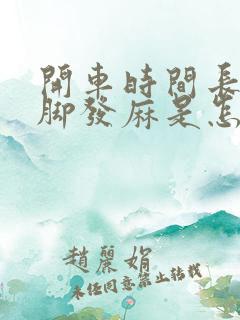 開車時間長
脚發麻是怎
趙麗娟
未经同意禁止转载